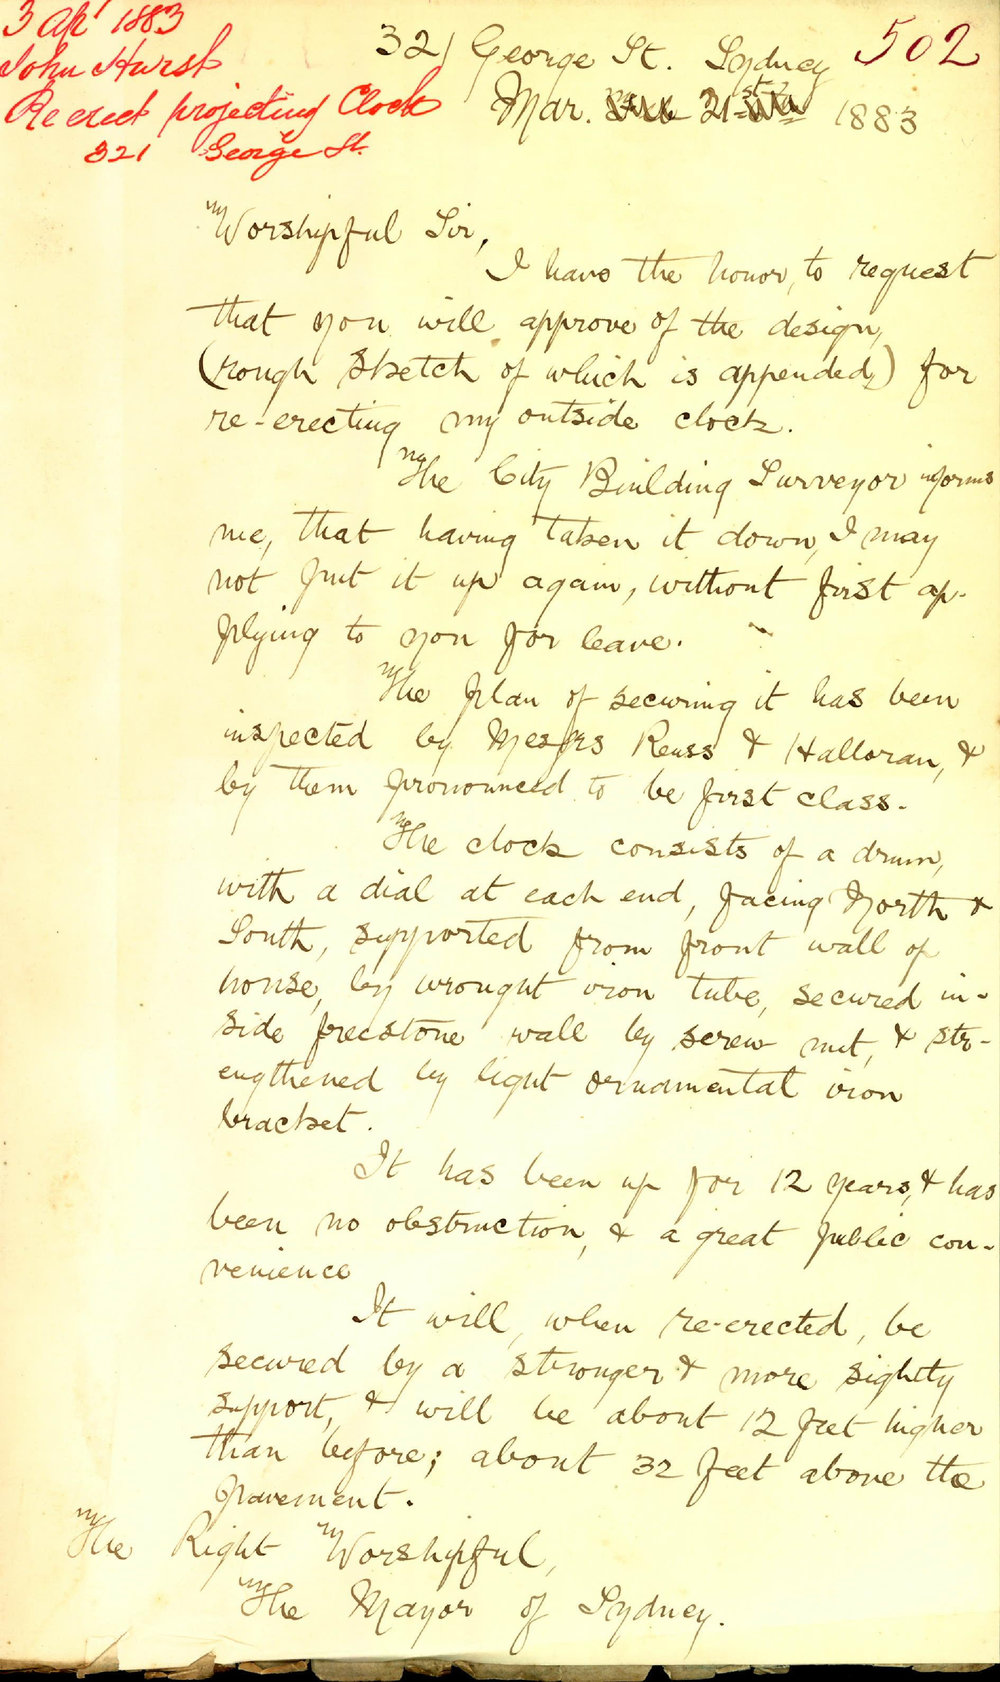 3 Apl 1883
John Hurst
Re erect projecting Clock
321 George St.
502
321 George St. Sydney
Mar. 21st 1883
Worshipful Sir,
I have the honor, to request
that you will approve of the design,
(rough sketch of which is appended,) for
re-erecting my outside clock.
The City Building Surveyor informs
me, that having taken it down, I may
not put it up again, without first ap-
plying to you for leave.
The plan of securing it has been
inspected by Messrs Reuss & Halloran, &
by them pronounced to be first class.
The clock consists of a drum,
with a dial at each end, facing North &
South, supported from front wall of
house, by wrought iron tube, secured in-
side freestone wall by screw nut, & str-
engthened by light ornamental iron
bracket.
It has been up for 12 years, & has
been no obstruction, & a great public con-
venience
It will, when re-erected, be
secured by a stronger & more sightly
support, & will be about 12 feet higher
than before; about 32 feet above the
pavement.
The Right Worshipful,
The Mayor of Sydney.